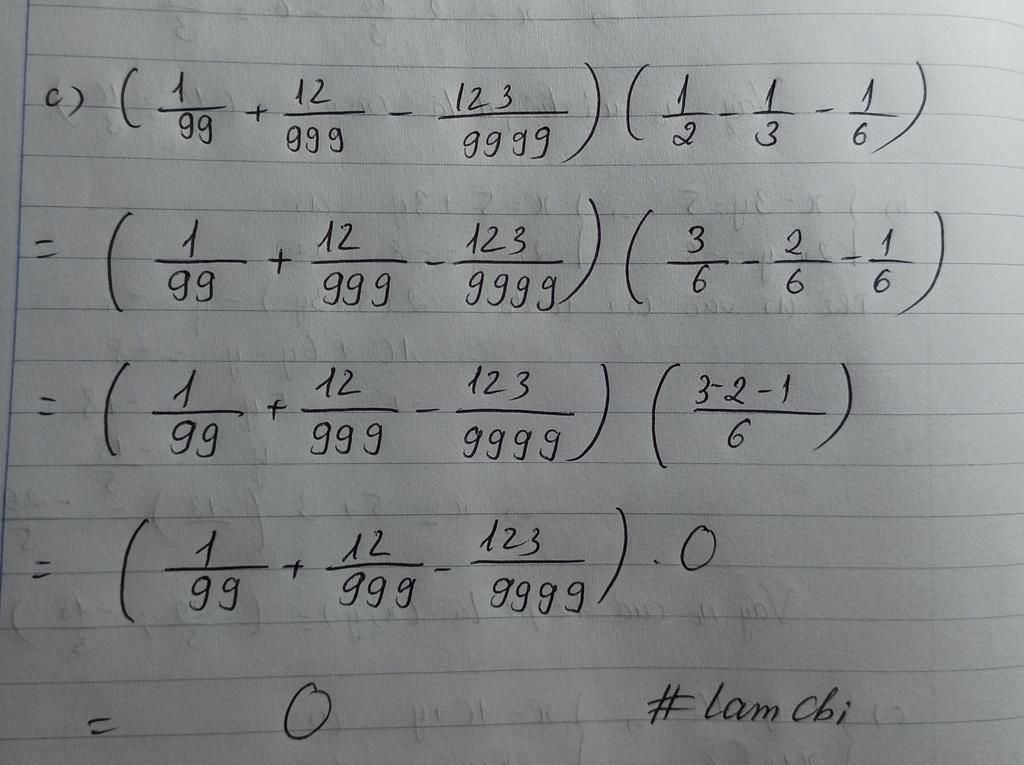 c) (1/99 + 12/999 - 123/9999) (1/2 - 1/3 - 1/6)
= (1/99 + 12/999 - 123/9999) (3/6 - 2/6 - 1/6)
= (1/99 + 12/999 - 123/9999) ((3-2-1)/6)
= (1/99 + 12/999 - 123/9999) . 0
= 0 #lamchi